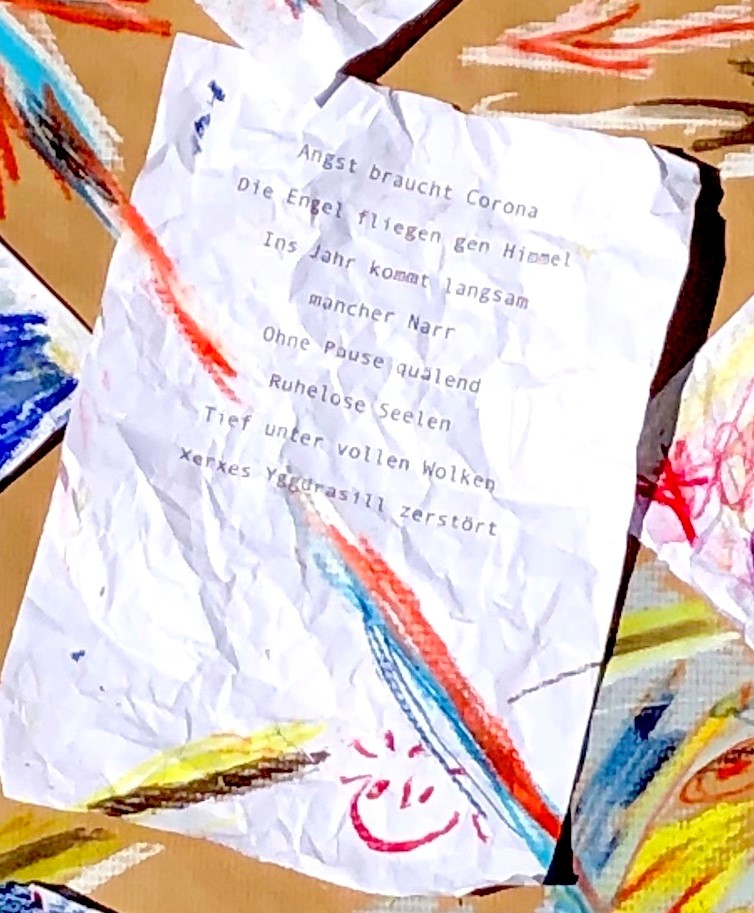 Angst braucht Corona
Die Engel fliegen gen Himmel
Ins Jahr kommt langsam
mancher Narr
Ohne Pause quälend
Ruhelose Seelen
Tief unter vollen Wolken
xerxes Yggdrasill zerstört